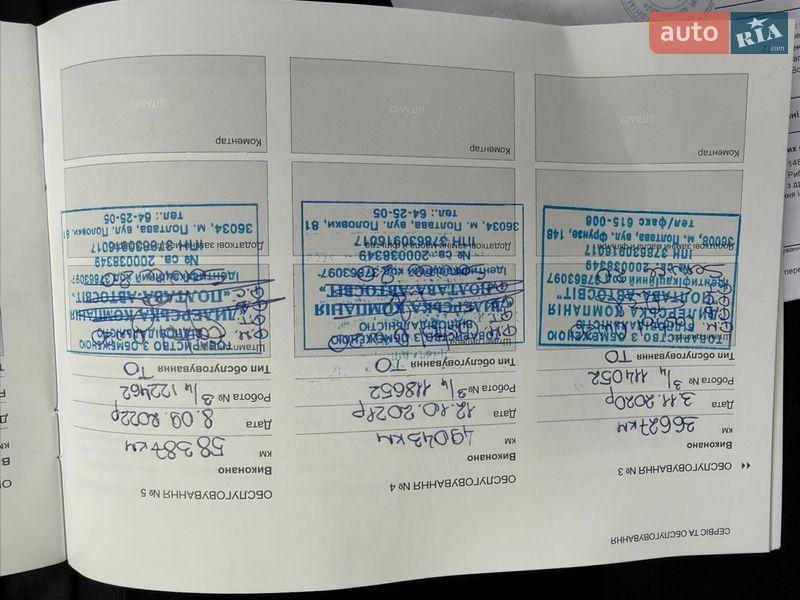 auto RIA .com
СЕРВІС ТА ОБСЛУГОВУВАННЯ
ОБСЛУГОВУВАННЯ № 3
Виконано
36627км
км
3.11.2020р
Дата
Робота № З/Ч 114052
Тип обслуговування ТО
Штамп
ТОВАРИСТВО З ОБМЕЖЕНОЮ
ВІДПОВІДАЛЬНІСТЮ
ДИЛЕРСЬКА КОМПАНІЯ
"ПОЛТАВА-АВТОСВІТ"
Ідентифікаційний код 37863097
№ св. 200038349
ІПН 378630916017
36008, м. Полтава, вул. Фрунзе, 148
тел/факс 615-008
Коментар
ШТАМП
ОБСЛУГОВУВАННЯ № 4
Виконано
49043км
км
12.10.2021р
Дата
Робота № З/Ч 118652
Тип обслуговування ТО
ТОВАРИСТВО З ОБМЕЖЕНОЮ
ВІДПОВІДАЛЬНІСТЮ
ДИЛЕРСЬКА КОМПАНІЯ
"ПОЛТАВА-АВТОСВІТ"
Ідентифікаційний код 37863097
№ св. 200038349
ІПН 378630916017
36034, м. Полтава, вул. Половки, 81
тел.: 64-25-05
Коментар
ШТАМП
ОБСЛУГОВУВАННЯ № 5
Виконано
58387км
км
8.09.2022р
Дата
Робота № З/Ч 122462
Тип обслуговування ТО
ТОВАРИСТВО З ОБМЕЖЕНОЮ
ВІДПОВІДАЛЬНІСТЮ
ДИЛЕРСЬКА КОМПАНІЯ
"ПОЛТАВА-АВТОСВІТ"
Ідентифікаційний код 37863097
№ св. 200038349
ІПН 378630916017
36034, м. Полтава, вул. Половки, 81
тел.: 64-25-05
Коментар
ШТАМП